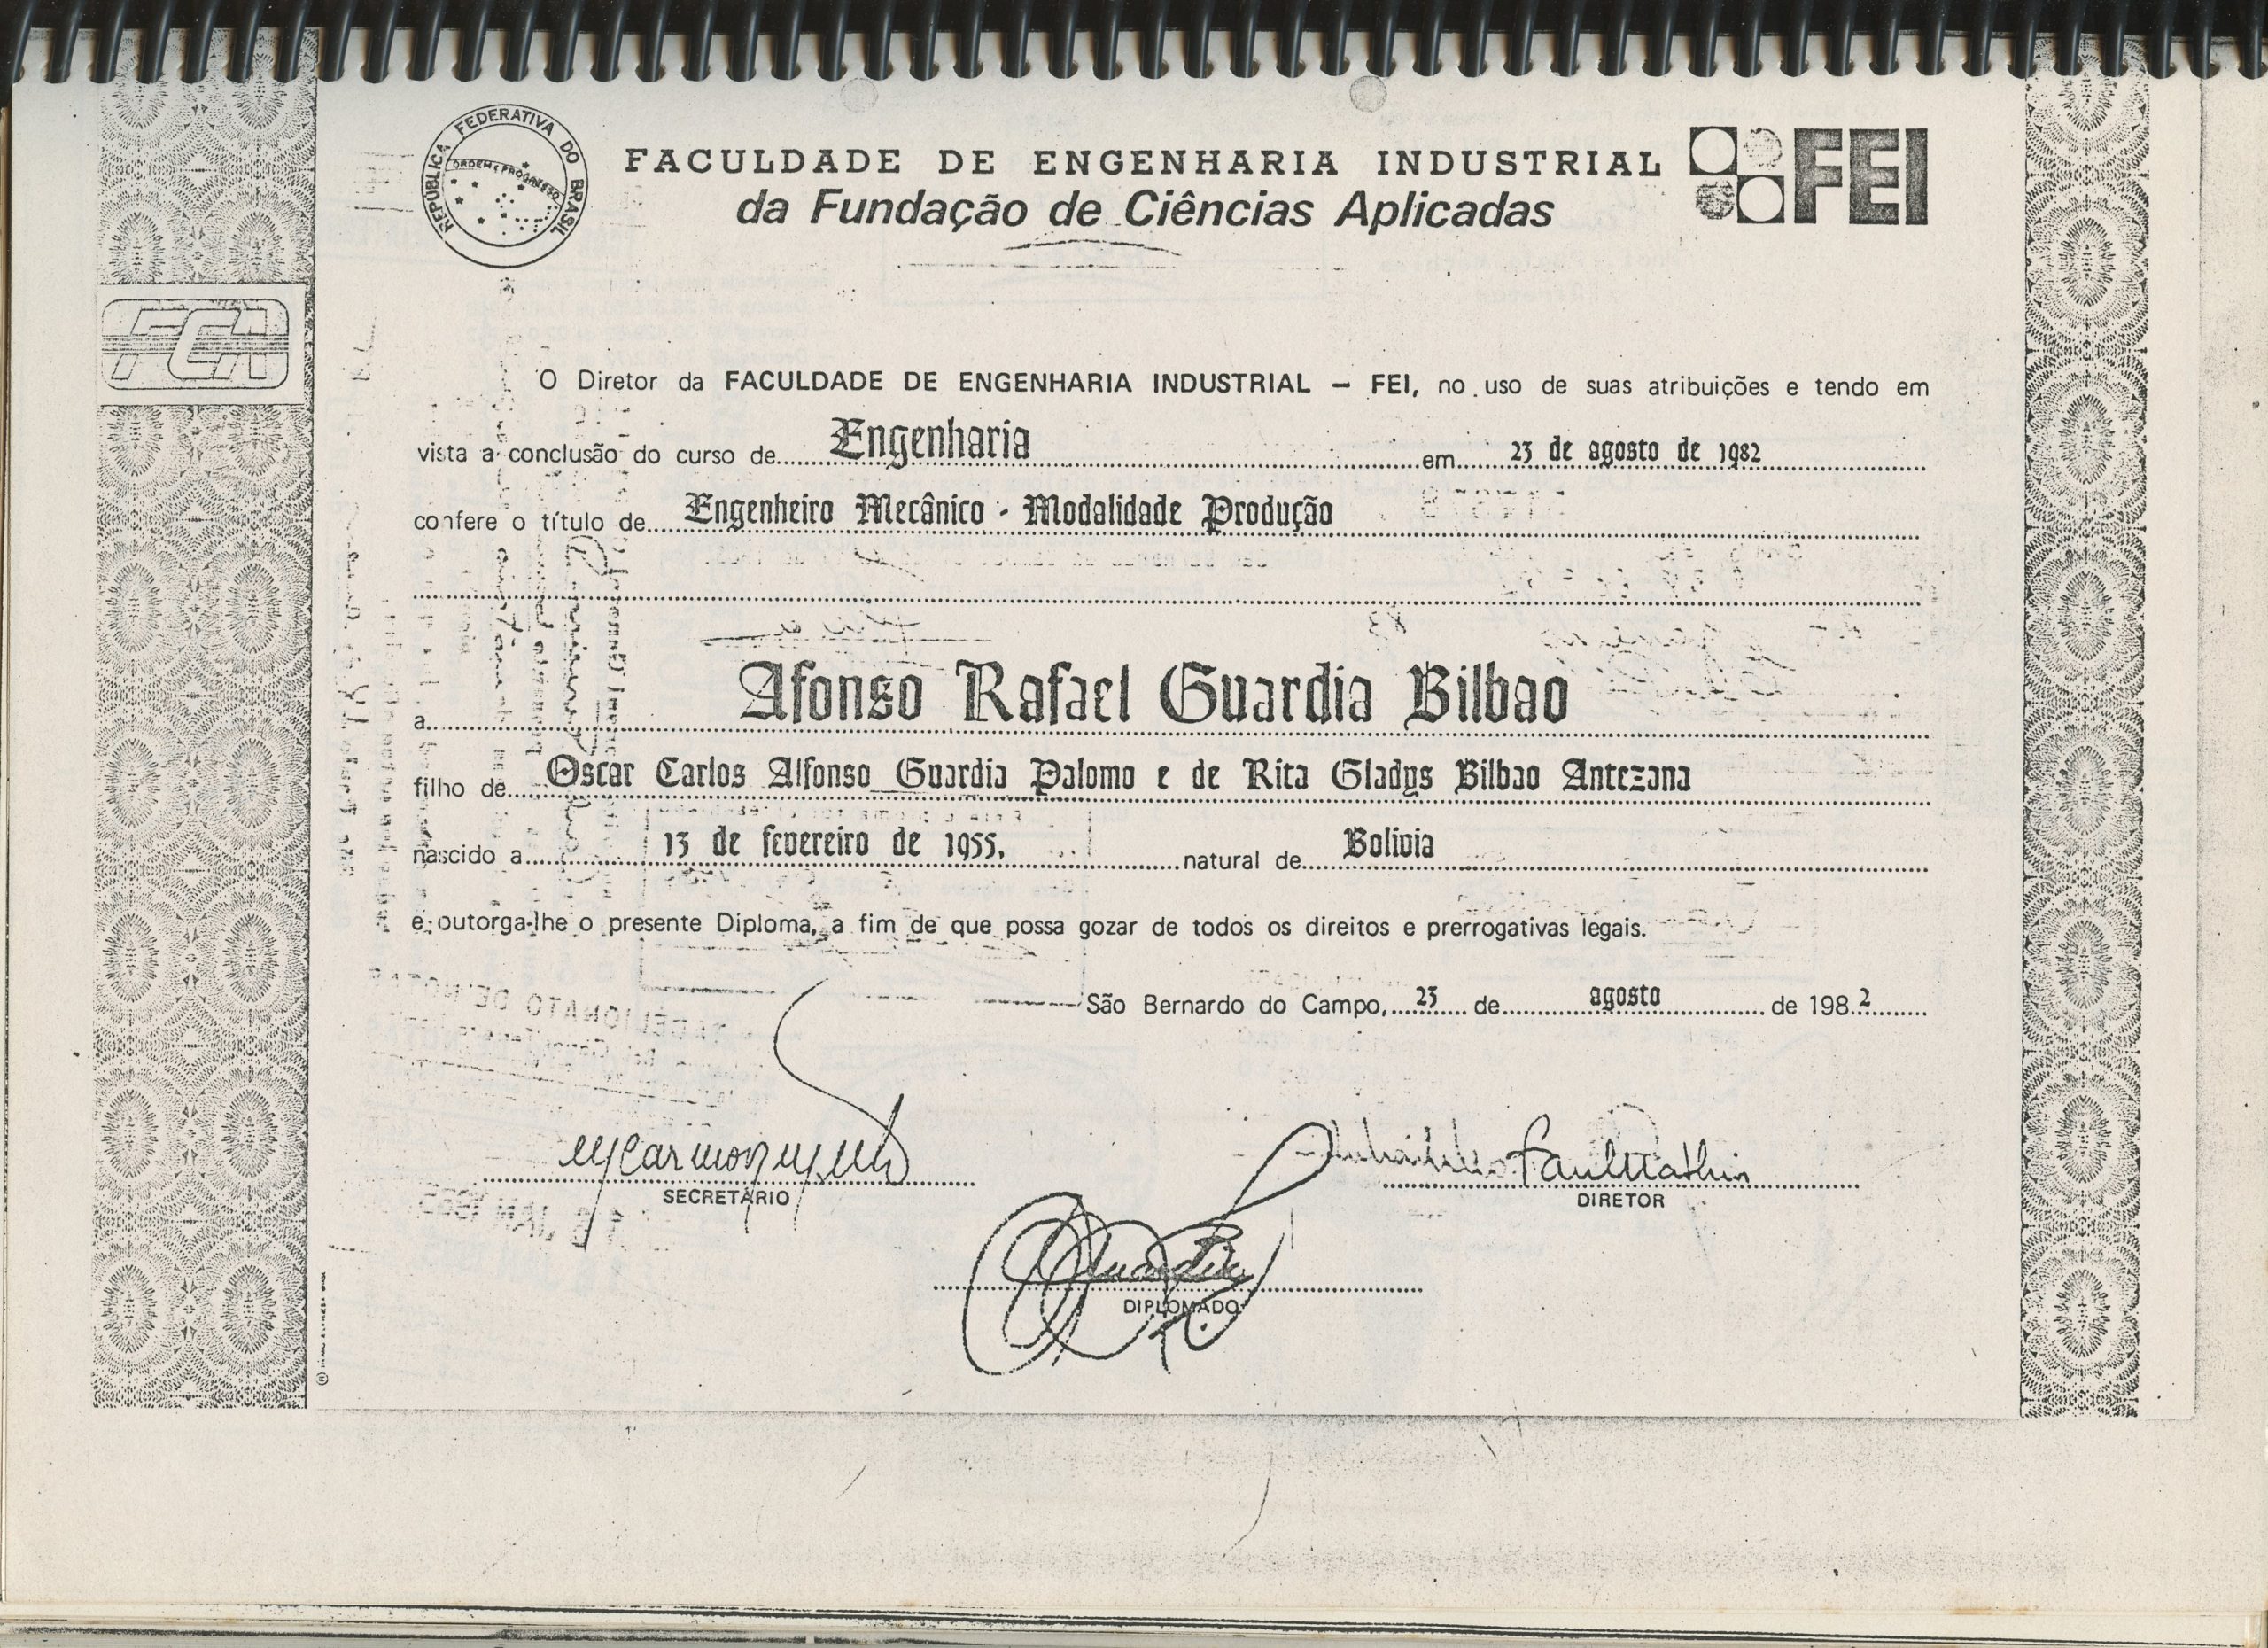 REPÚBLICA FEDERATIVA DO BRASIL
ORDEM E PROGRESSO
FACULDADE DE ENGENHARIA INDUSTRIAL
da Fundação de Ciências Aplicadas
FEI
FCA
O Diretor da FACULDADE DE ENGENHARIA INDUSTRIAL – FEI, no uso de suas atribuições e tendo em
vista a conclusão do curso de Engenharia em 23 de agosto de 1982
confere o título de Engenheiro Mecânico - Modalidade Produção
a Afonso Rafael Guardia Bilbao
filho de Oscar Carlos Alfonso Guardia Palomo e de Rita Gladys Bilbao Antezana
nascido a 13 de fevereiro de 1955, natural de Bolivia
e outorga-lhe o presente Diploma, a fim de que possa gozar de todos os direitos e prerrogativas legais.
São Bernardo do Campo, 23 de agosto de 1982
SECRETÁRIO
DIRETOR
DIPLOMADO